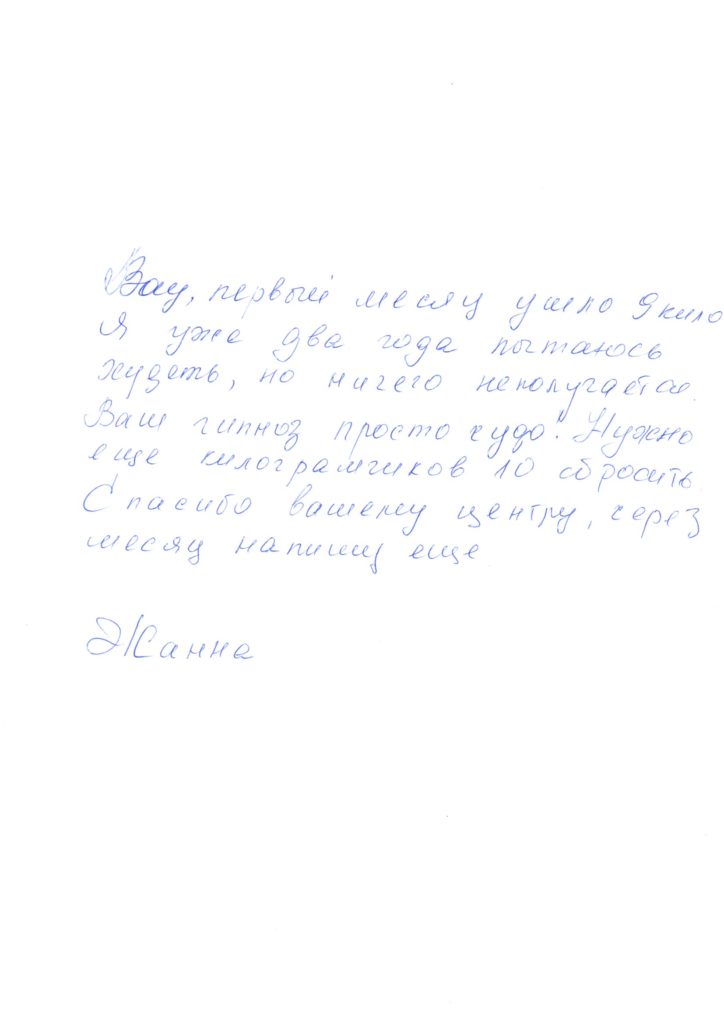 Вау, первый месяц ушло 9 кило
Я уже два года пытаюсь
худеть, но ничего неполучается.
Ваш гипноз просто чудо! Нужно
еще килограмчиков 10 сбросить
Спасибо вашему центру, через
месяц напишу еще
Жанна